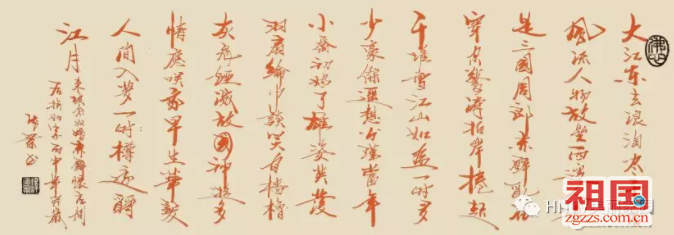 大江东去浪淘尽
风流人物故垒西边
是三国周郎赤壁乱石
穿空惊涛拍岸捲起
千堆雪江山如画一时多
少豪傑遥想公瑾当年
小乔初嫁了雄姿英发
羽扇纶巾谈笑间樯橹
灰飞烟灭故国神游多
情应笑我早生华发
人间入梦一时樽还酹
江月
祖国
zgzzs.com.cn